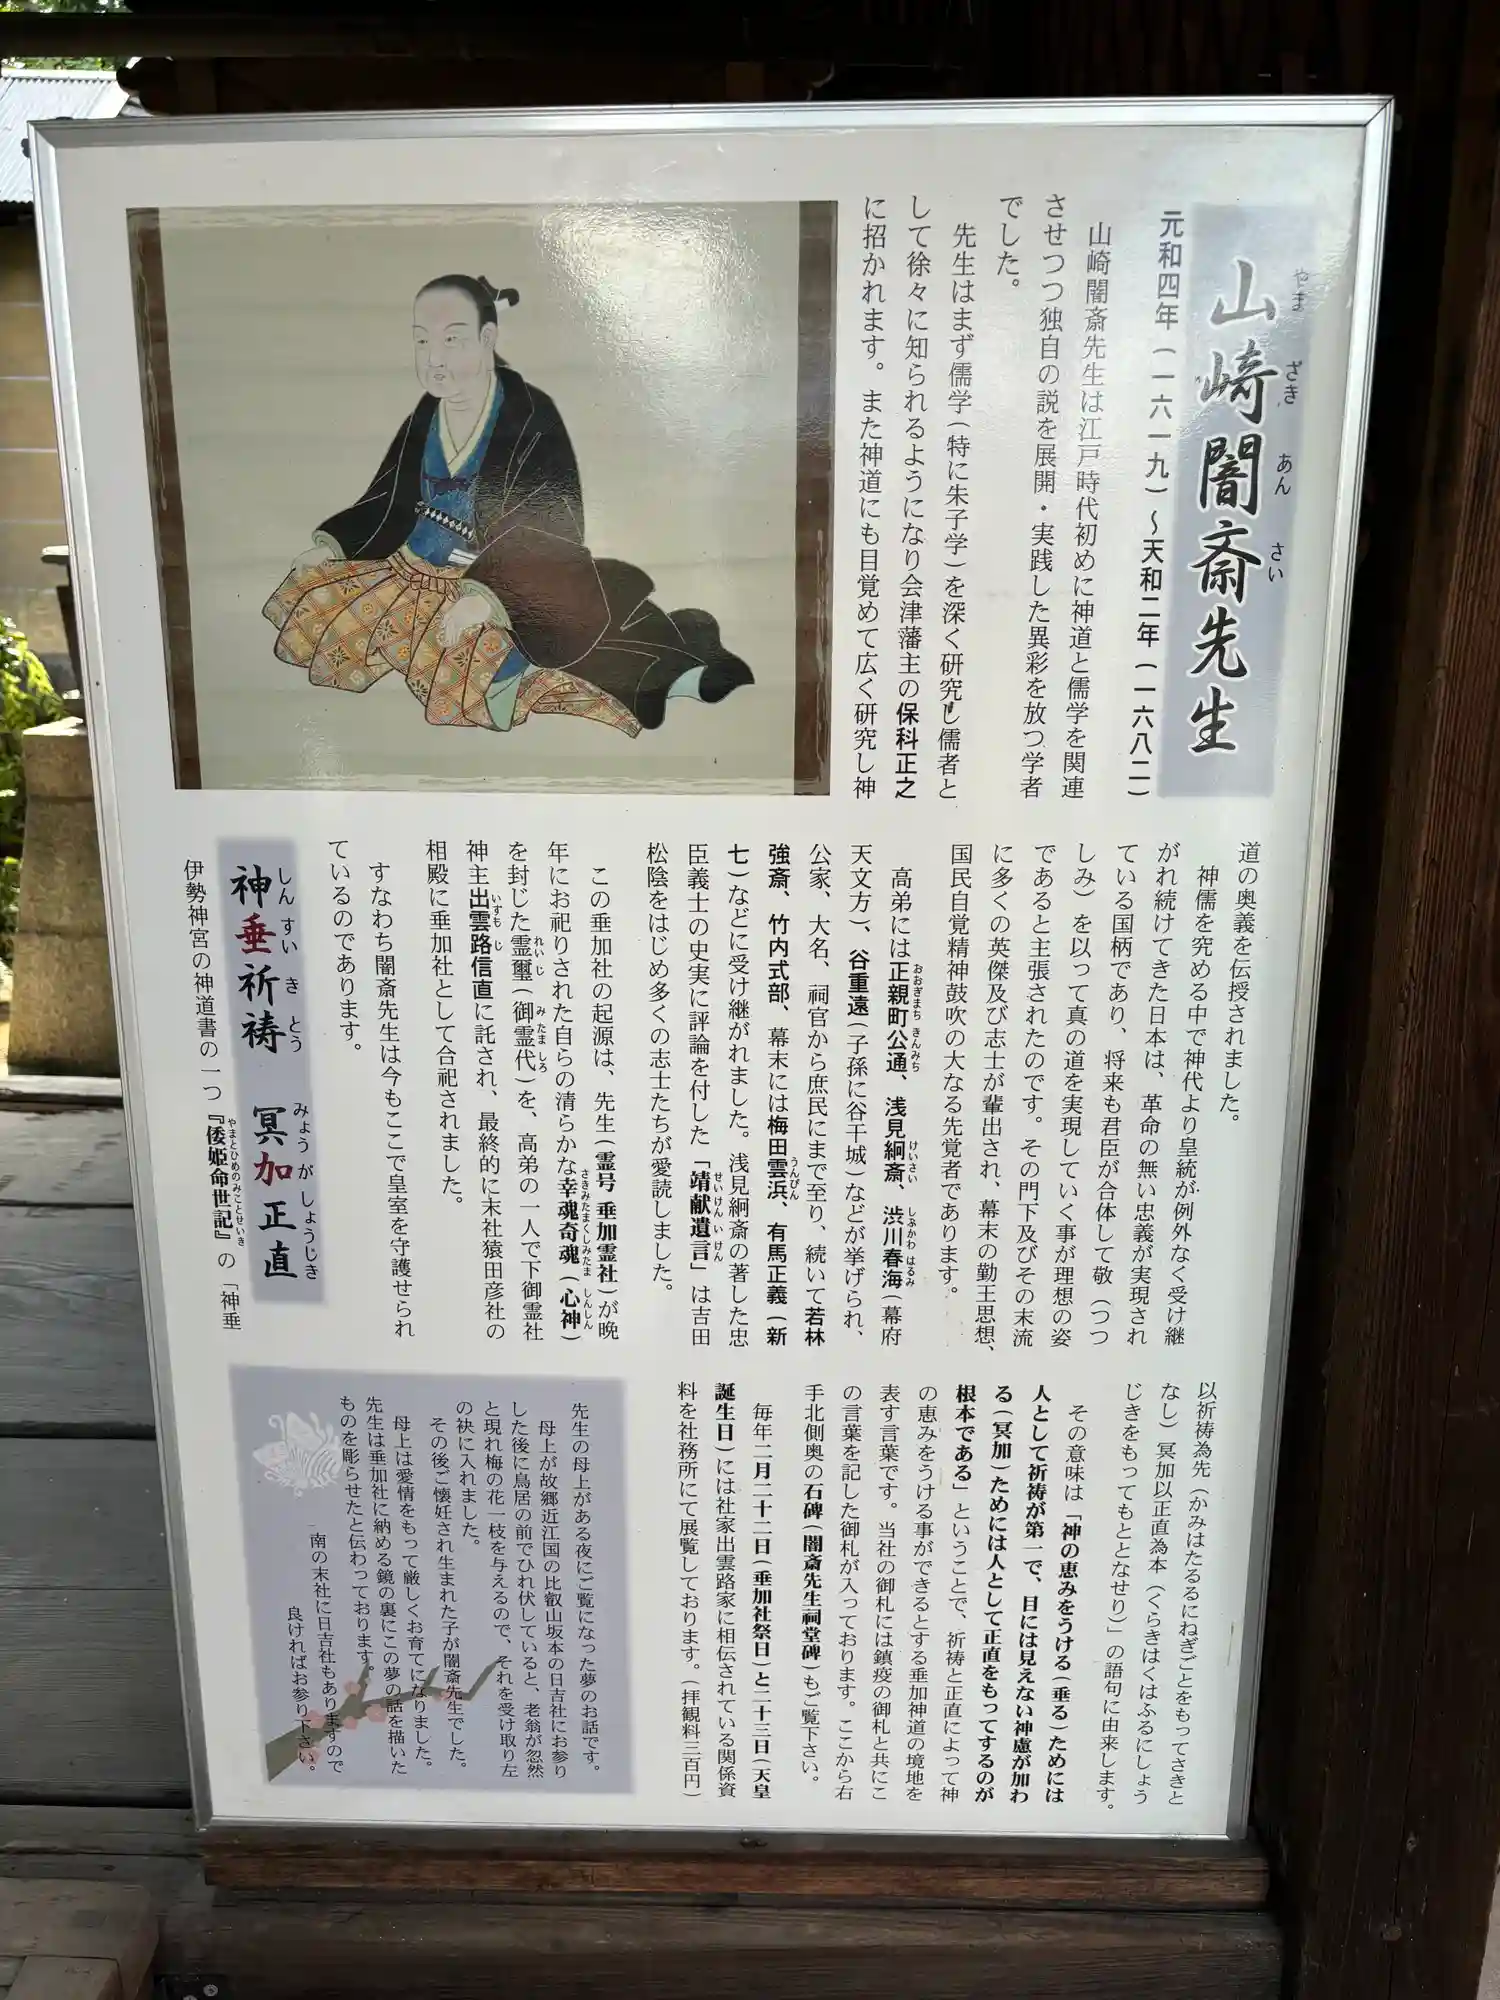 山崎闇斎先生
やま ざき あん さい
元和四年（一六一九）～天和二年（一六八二）
山崎闇斎先生は江戸時代初めに神道と儒学を関連
させつつ独自の説を展開・実践した異彩を放つ学者
でした。
先生はまず儒学（特に朱子学）を深く研究し儒者と
して徐々に知られるようになり会津藩主の保科正之
に招かれます。また神道にも目覚めて広く研究し神
道の奥義を伝授されました。
神儒を究める中で神代より皇統が例外なく受け継
がれ続けてきた日本は、革命の無い忠義が実現され
ている国柄であり、将来も君臣が合体して敬（つつ
しみ）を以って真の道を実現していく事が理想の姿
であると主張されたのです。その門下及びその末流
に多くの英傑及び志士が輩出され、幕末の勤王思想、
国民自覚精神鼓吹の大なる先覚者であります。
高弟には正親町公通、浅見絅斎、渋川春海（幕府
おおぎまち きんみち けいさい しぶかわ はるみ
天文方）、谷重遠（子孫に谷干城）などが挙げられ、
公家、大名、祠官から庶民にまで至り、続いて若林
強斎、竹内式部、幕末には梅田雲浜、有馬正義（新
うんぴん
七）などに受け継がれました。浅見絅斎の著した忠
臣義士の史実に評論を付した「靖献遺言」は吉田
せいけん い けん
松陰をはじめ多くの志士たちが愛読しました。
この垂加社の起源は、先生（霊号 垂加霊社）が晩
年にお祀りされた自らの清らかな幸魂奇魂（心神）
さきみたまくしみたま しんしん
を封じた霊璽（御霊代）を、高弟の一人で下御霊社
れいじ み たましろ
神主出雲路信直に託され、最終的に末社猿田彦社の
いずも じ
相殿に垂加社として合祀されました。
すなわち闇斎先生は今もここで皇室を守護せられ
ているのであります。
神垂祈祷 冥加正直
しん すい き とう みょう が しょうじき
伊勢神宮の神道書の一つ『倭姫命世記』の「神垂
やまとひめのみことせいき
以祈祷為先（かみはたるるにねぎごとをもってさきと
なし）冥加以正直為本（くらきはくはふるにしょう
じきをもってもととなせり）」の語句に由来します。
その意味は「神の恵みをうける（垂る）ためには
人として祈祷が第一で、目には見えない神慮が加わ
る（冥加）ためには人として正直をもってするのが
根本である」ということで、祈祷と正直によって神
の恵みをうける事ができるとする垂加神道の境地を
表す言葉です。当社の御札には鎮疫の御札と共にこ
の言葉を記した御札が入っております。ここから右
手北側奥の石碑（闇斎先生祠堂碑）もご覧下さい。
毎年二月二十二日（垂加社祭日）と二十三日（天皇
誕生日）には社家出雲路家に相伝されている関係資
料を社務所にて展覧しております。（拝観料三百円）
先生の母上がある夜にご覧になった夢のお話です。
母上が故郷近江国の比叡山坂本の日吉社にお参り
した後に鳥居の前でひれ伏していると、老翁が忽然
と現れ梅の花一枝を与えるので、それを受け取り左
の袂に入れました。
その後ご懐妊され生まれた子が闇斎先生でした。
母上は愛情をもって厳しくお育てになりました。
先生は垂加社に納める鏡の裏にこの夢の話を描いた
ものを彫らせたと伝わっております。
南の末社に日吉社もありますので
良ければお参り下さい。